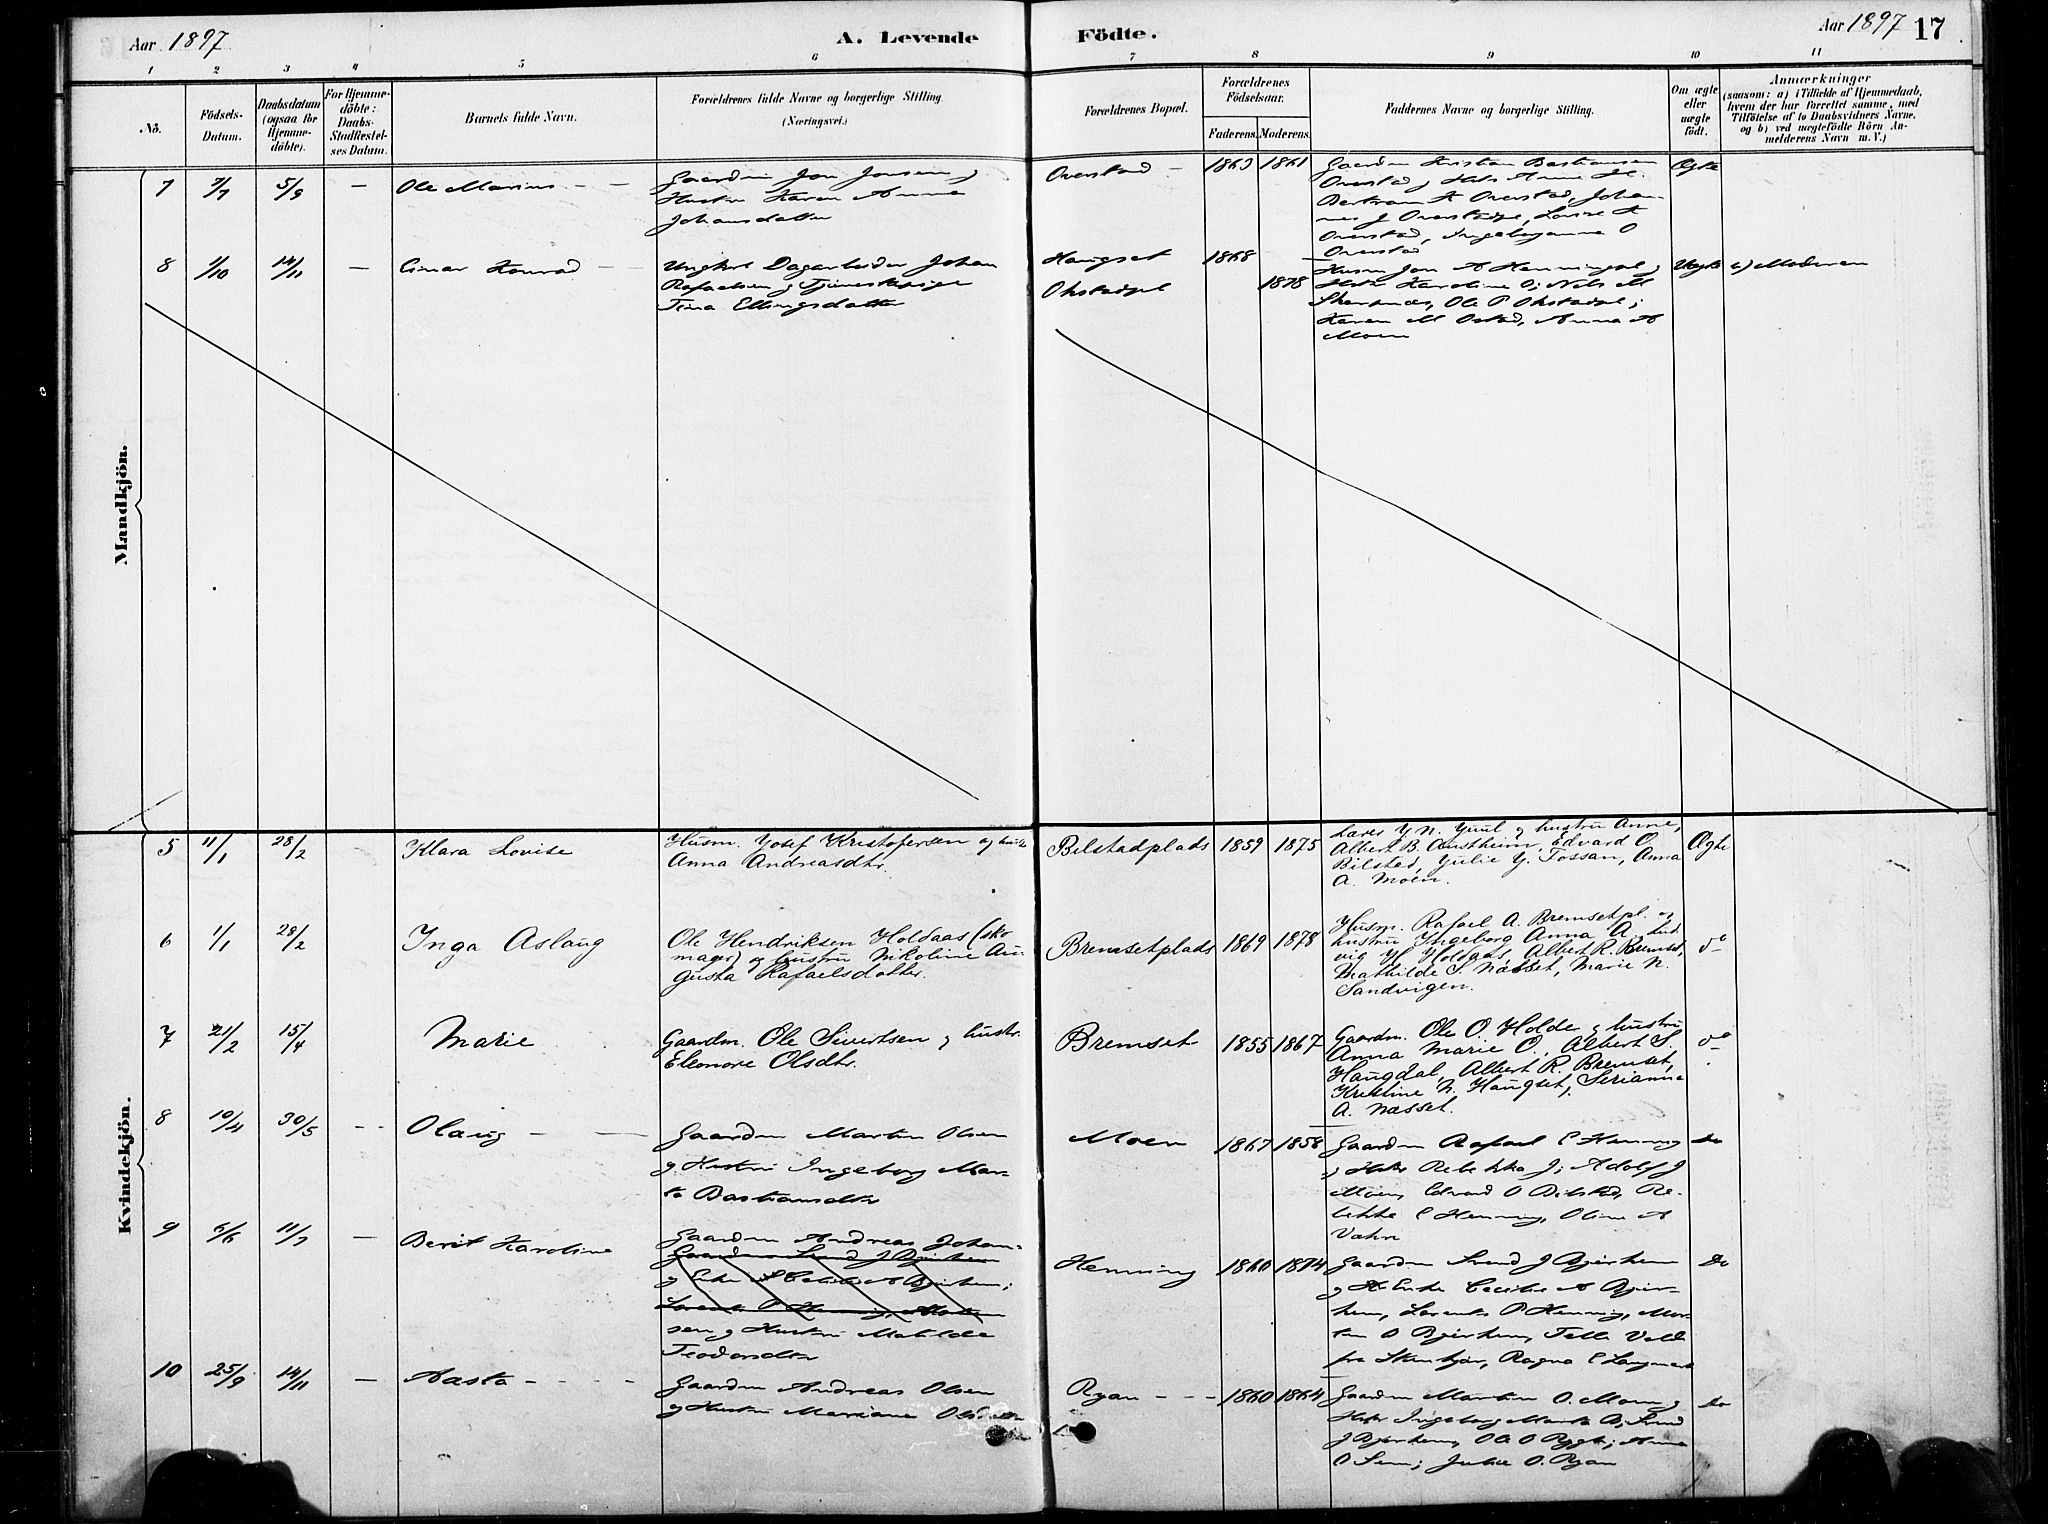 Aar 1897
A. Levende
Födte.
Aar 1897 17
1 2 3 4 5 6 7 8 9 10 11
No.
Födsels-
Datum.
Daabsdatum
(ogsaa for
Hjemme-
döbte).
For Hjemme-
döbte:
Daabs-
Stadfæstel-
ses Datum.
Barnets fulde Navn.
Forældrenes fulde Navne og borgerlige Stilling.
(Næringsvei.)
Forældrenes Bopæl.
Forældrenes
Födselsaar.
Faderens. Moderens.
Faddernes Navne og borgerlige Stilling.
Om ægte
eller
uægte
födt.
Anmærkninger
(saasom: a) i Tilfælde af Hjemmedaab,
hvem der har forrettet samme, med
Tilföielse af to Daabsvidners Navne,
og b) ved uægtefödte Börn An-
melderens Navn m. V.)
Mandkjön.
7 7/7 5/9 — Ole Marius — —
Gaardm Jon Jonsen og
Hustru Karen Anna
Johansdatter
Overstad — 1863 1861
Gaardm Kristian Bastiansen
Overstad og Hustr Anne
Bertram K Overstad, Johan-
nes J Overstadpl, Lovise K
Overstad, Ingeborganna O
Overstad
Ægte
8 1/10 14/11 — Einar Konrad —
Ungkarl Dagarbeider Johan
Rafaelsen og Tjenestepige
Tina Ellingsdatter
Haugset 1868
Okstadpl 1878
Husm Jon A Henningpl og
Hustr Karoline O; Nils M
Skernes, Ole P Okstadpl;
Karen M Ostad, Anna A
Moen
Uægte b) Moderen
Kvindekjön.
5 11/1 28/2 Klara Lovise
Husm. Josef Kristofersen og hustr
Anna Andreasdtr.
Bilstadplads 1859 1875
Lærer J. N. Juul og hustru Anne,
Albert B. Austheim, Edvard O.
Bilstad, Julie J. Fossan, Anna
A. Moen.
Ægte
6 1/1 28/2 Inga Aslaug
Ole Hendriksen Holdaas (sko
mager) og hustru Nikoline Au
gusta Rafaelsdatter.
Bremsetplads 1869 1878
Husm. Rafael A. Bremsetpl. og
hustru Ingeborg Anna A., Lud
vig H. Holdaas, Albert R. Bremset,
Mathilde S. Næsset, Marie N.
Sandvigen.
do
7 21/2 15/4 Marie
Gaardm. Ole Sivertsen og hustr.
Eleonore Olsdtr.
Bremset 1855 1867
Gaardm. Ole O. Holde og hustru
Anna Marie O., Albert S.
Haugdal, Albert R. Bremset,
Kristine N. Haugset, Serianna
A. Næsset.
do
8 10/4 30/5 -- Olaug — —
Gaardm Martin Olsen
og Hustru Ingeborg Mar-
ta Bastiansdtr
Moen 1867 1858
Gaardm Rafael E Henning
og Hustr Rebekka J; Adolf J
Moen, Edvard O Bilstad, Re-
bekka E Henning, Oline A
Do
9 6/6 11/7 — Berit Karoline
Gaardm Andreas Johan-
Gaardm Svend J Bjerkem
og Enke Cecilie A Bjerkem;
Lorents P Henning, Morten
sen og Hustru Matilde
Teodorsdtr
Henning 1860 1874
Gaardm Svend J Bjerkem
og Enke Cecilie A Bjer-
kem, Lorents P Henning, Mor-
ten O Bjerkem,
fra Stenkjær, Ragna E
Do
10 25/9 14/11 — Aasta - - - -
Gaardm Andreas Olsen
og Hustru Mariane Olsdatter
Ryan - - - 1860 1864
Gaardm Martin O. Moen og
Hustr Ingeborg Marta B; Svend
J Bjerkem, Ole O Rygh; Anna
O Sem; Julie O. Ryan
Do